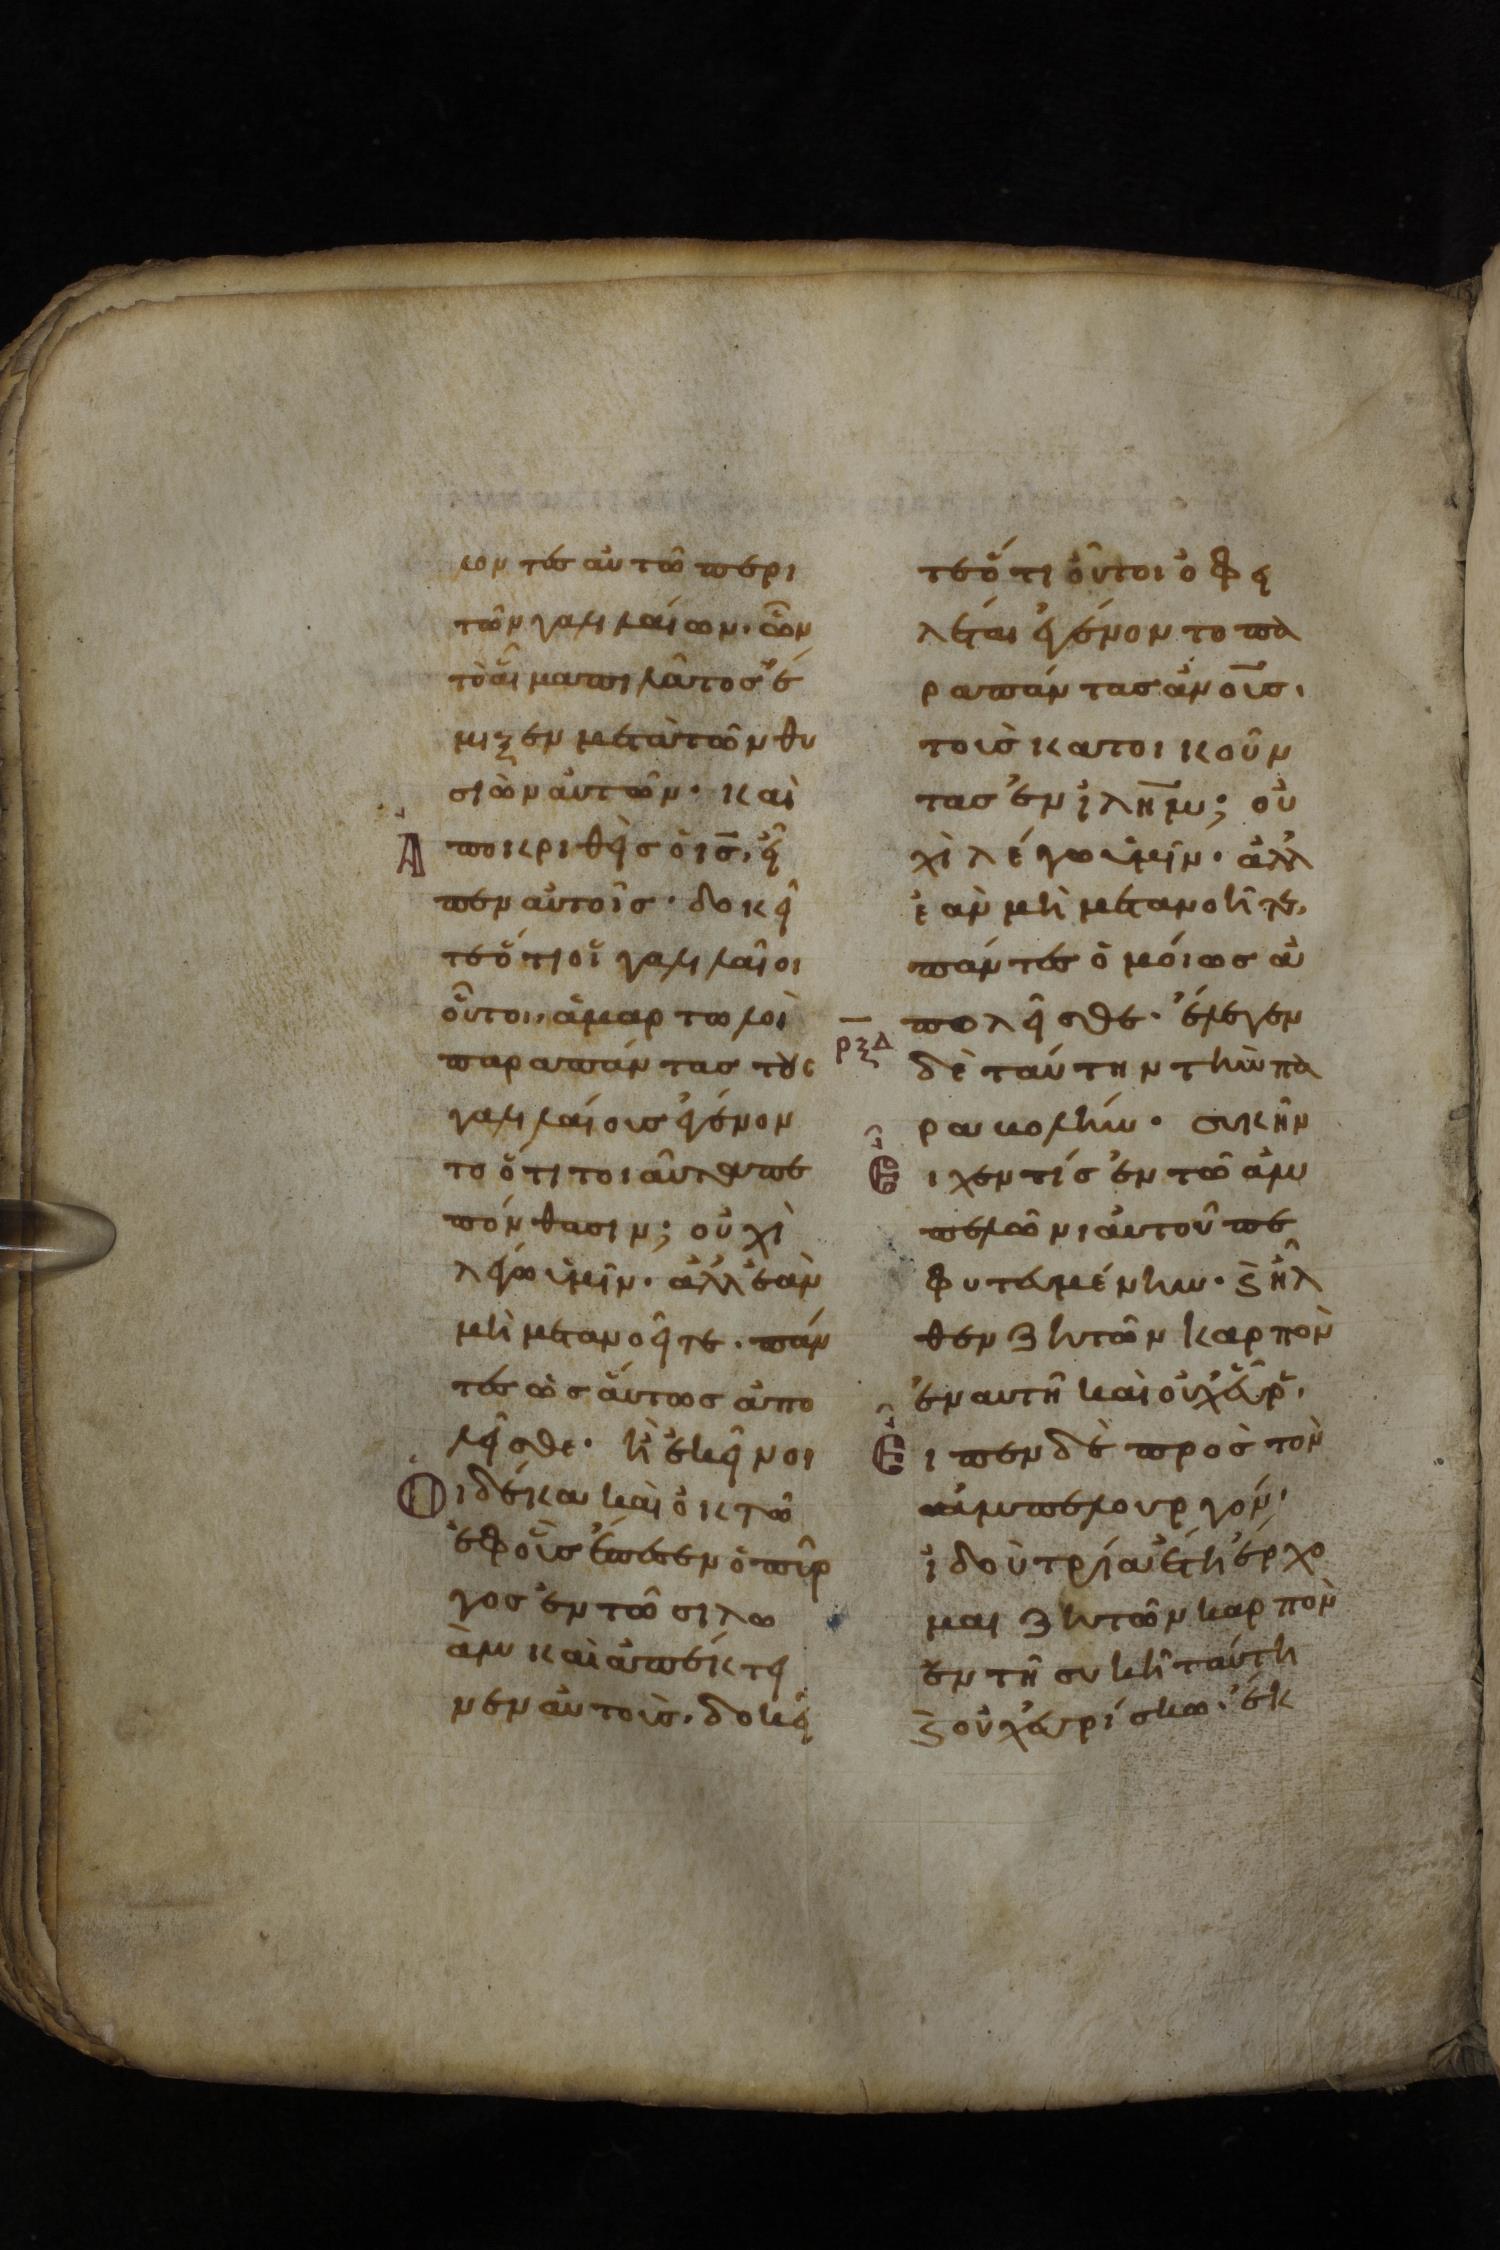 ωντες αὐτῶ περι
τῶν γαλιλαίων· ὧν
τὸ αἷμα πιλᾶτος ἔ
μιξεν μετὰ τῶν θυ
σιῶν αὐτῶν· καὶ
Ἀποκριθεὶς ὁ ις̅, εἶ
πεν αὐτοῖς· δοκεῖ
τε ὅτι οἱ γαλιλαῖοι
οὗτοι, ἁμαρτωλοὶ
παρα πάντας τοὺς
γαλιλαίους ἐγένον
το ὅτι τοιαῦτα πε
πόνθασιν; οὐχὶ
λέγω ὑμῖν· ἀλλ ἐὰν
μὴ μετανοεῖτε· πάν
τες ὡσαύτως ἀπο
λεῖσθε· ἢ ἐκεῖνοι
Ὁι δέκα καὶ ὀκτῶ
ἐφ οὓς ἔπεσεν ὁ πύρ
γος ἐν τῶ σιλω
ὰμ καὶ ἀπέκτει
νεν αὐτοὺς. δοκεῖ
τε ὅτι οὗτοι ὀφει
λέται ἐγένοντο πὰ
ρα πάντας ἀν̅ο̅υς,
τοὺς κατοικοῦν
τας ἐν ἱλη̅μ; οὐ
χὶ λέγω ὑμῖν· ἀλλ
ἐὰν μὴ μετανοῆτε,
πάντες ὁμοίως ἀ
πολεῖσθε· ἔλεγεν
ρξδ δὲ ταύτην τὴν πὰ
ραβολήν· συκῆν
Εἶχεν τίς ἐν τῶ ἀμ
πελῶνι αὐτοῦ πε
φυτευμένην· ξ ἦλ
θεν ζητῶν καρπὸν
ἐν αυτῆ καὶ οὐχ εὗρ,
Εἶπεν δὲ πρὸς τὸν
ἀμπελουργόν,
ἰδοὺ τρία ἔτη ἔρχο
μαι ζητῶν καρπὸν
ἐν τῆ συκῆ ταύτη
ξ οὐχ ευρίσκω· ἔκ